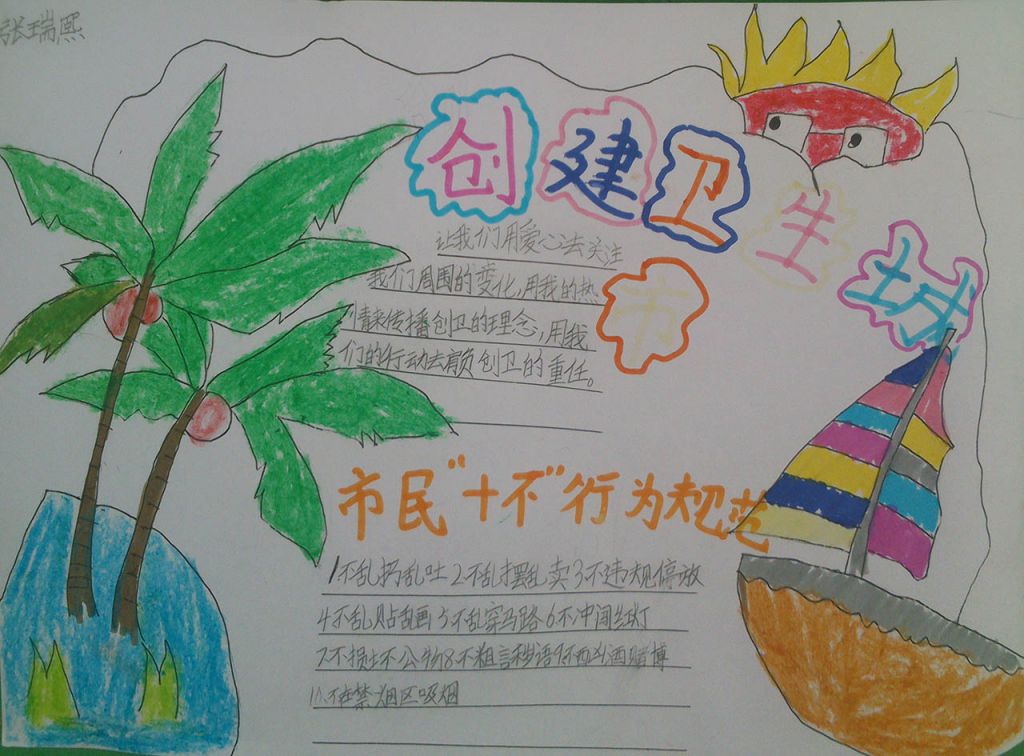 张瑞熙
创建卫生城市
让我们用爱心去关注
我们周围的变化,用我的热
情来传播创卫的理念,用我
们的行动去肩负创卫的重任。
市民“十不”行为规范
1不乱扔乱吐 2不乱摆乱卖 3不违规停放
4不乱贴乱画 5不乱穿马路 6不冲闯红灯
7不损坏公物 8不粗言秽语 9不酗酒赌博
10.不在禁烟区吸烟